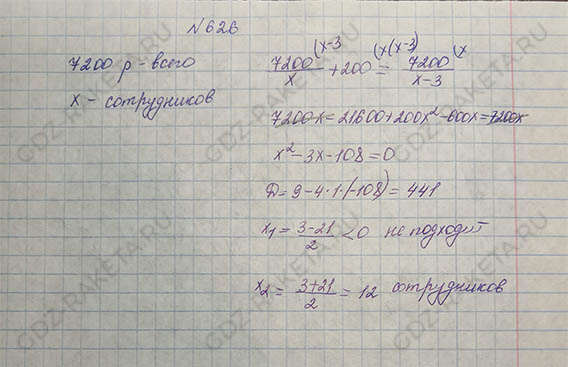 №626
7200 р - всего
x - сотрудников
7200/x (x-3 + 200 (x(x-3) = 7200/x-3 (x
7200x = 21600 + 200x² - 600x = 7200x
x² - 3x - 108 = 0
Д = 9 - 4·1·(-108) = 441
x₁ = 3-21/2 < 0 не подходит
x₂ = 3+21/2 = 12 сотрудников
GDZ-RAKETA.RU